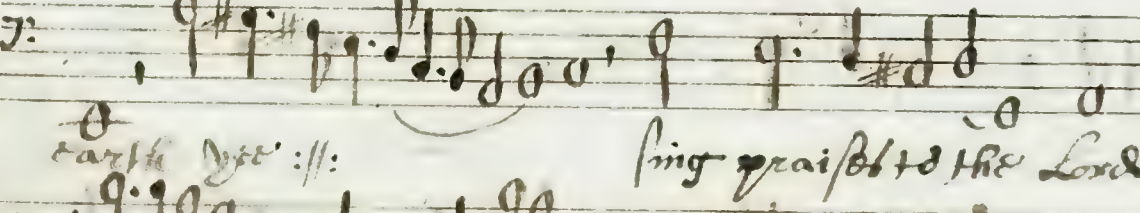 earth yee :||: sing praises to the Lord